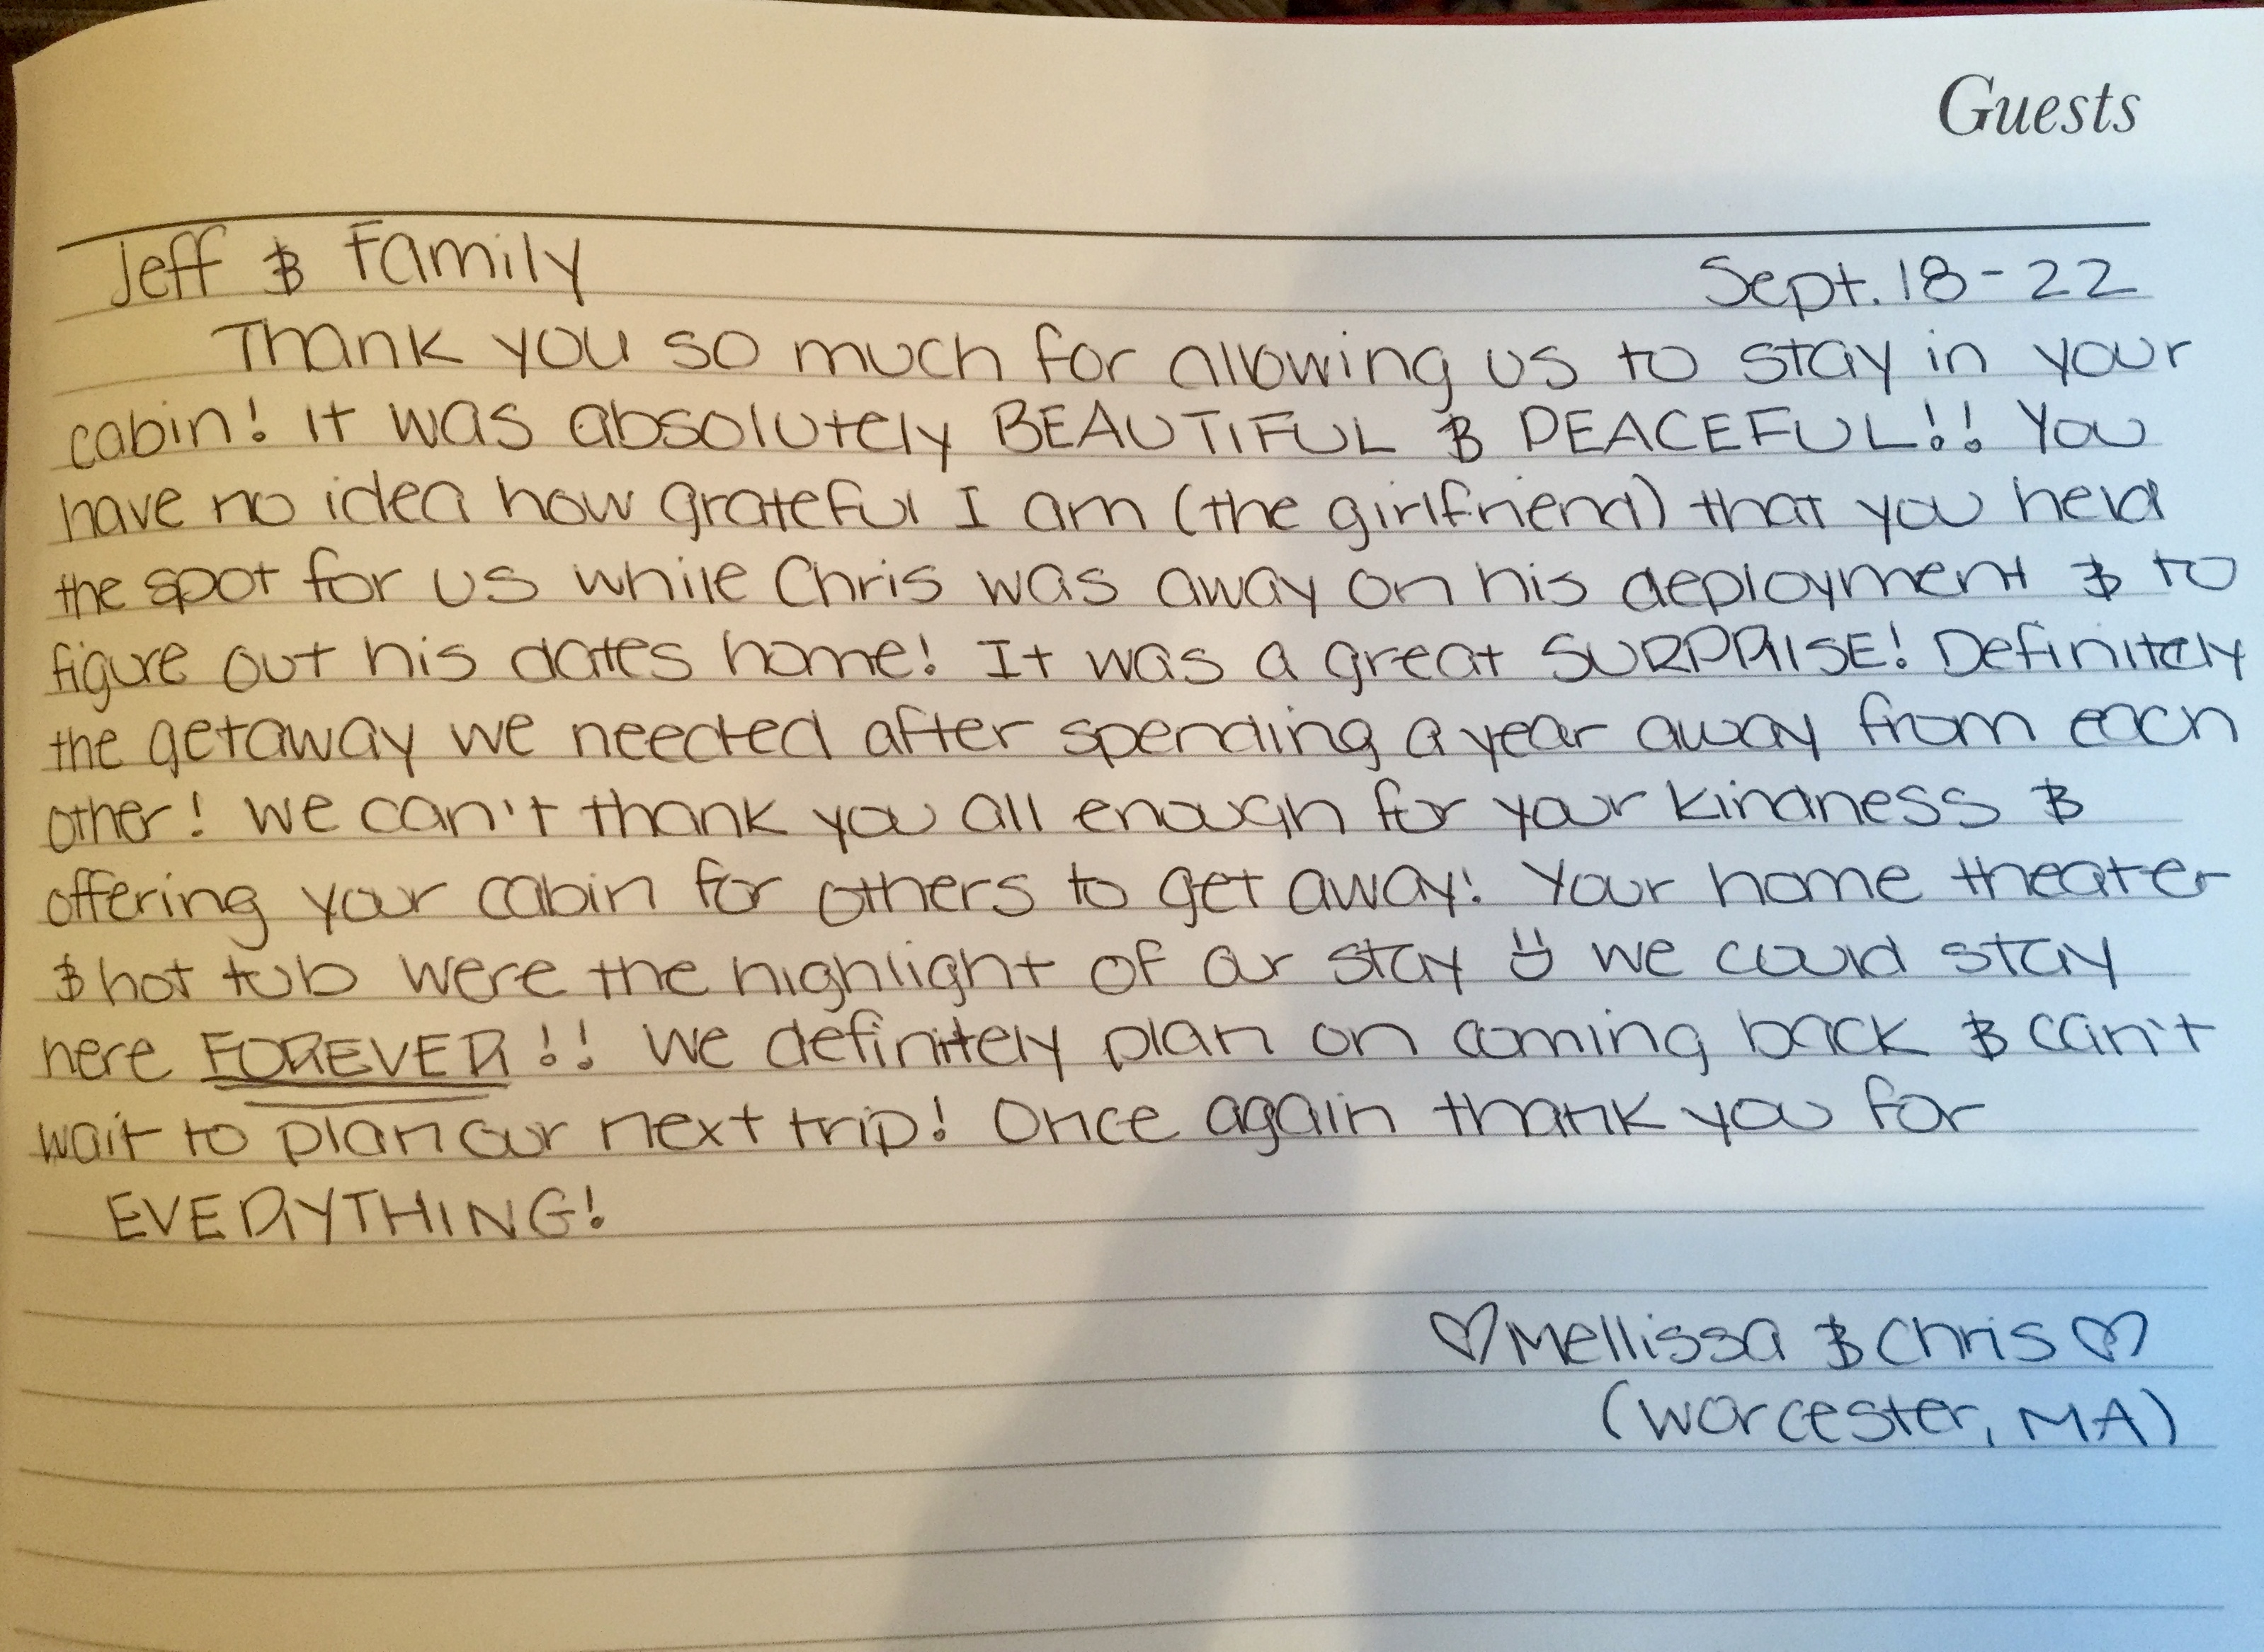 Guests
Jeff & Family
Sept. 18-22
Thank you so much for allowing us to stay in your
cabin! It was absolutely BEAUTIFUL & PEACEFUL!! You
have no idea how grateful I am (the girlfriend) that you held
the spot for us while Chris was away on his deployment & to
figure out his dates home! It was a great SURPRISE! Definitely
the getaway we needed after spending a year away from each
other! We can't thank you all enough for your kindness &
offering your cabin for others to get away! Your home theater
& hot tub were the highlight of our stay :) We could stay
here FOREVER!! We definitely plan on coming back & can't
wait to plan our next trip! Once again thank you for
EVERYTHING!
♡Mellissa & Chris♡
(Worcester, MA)